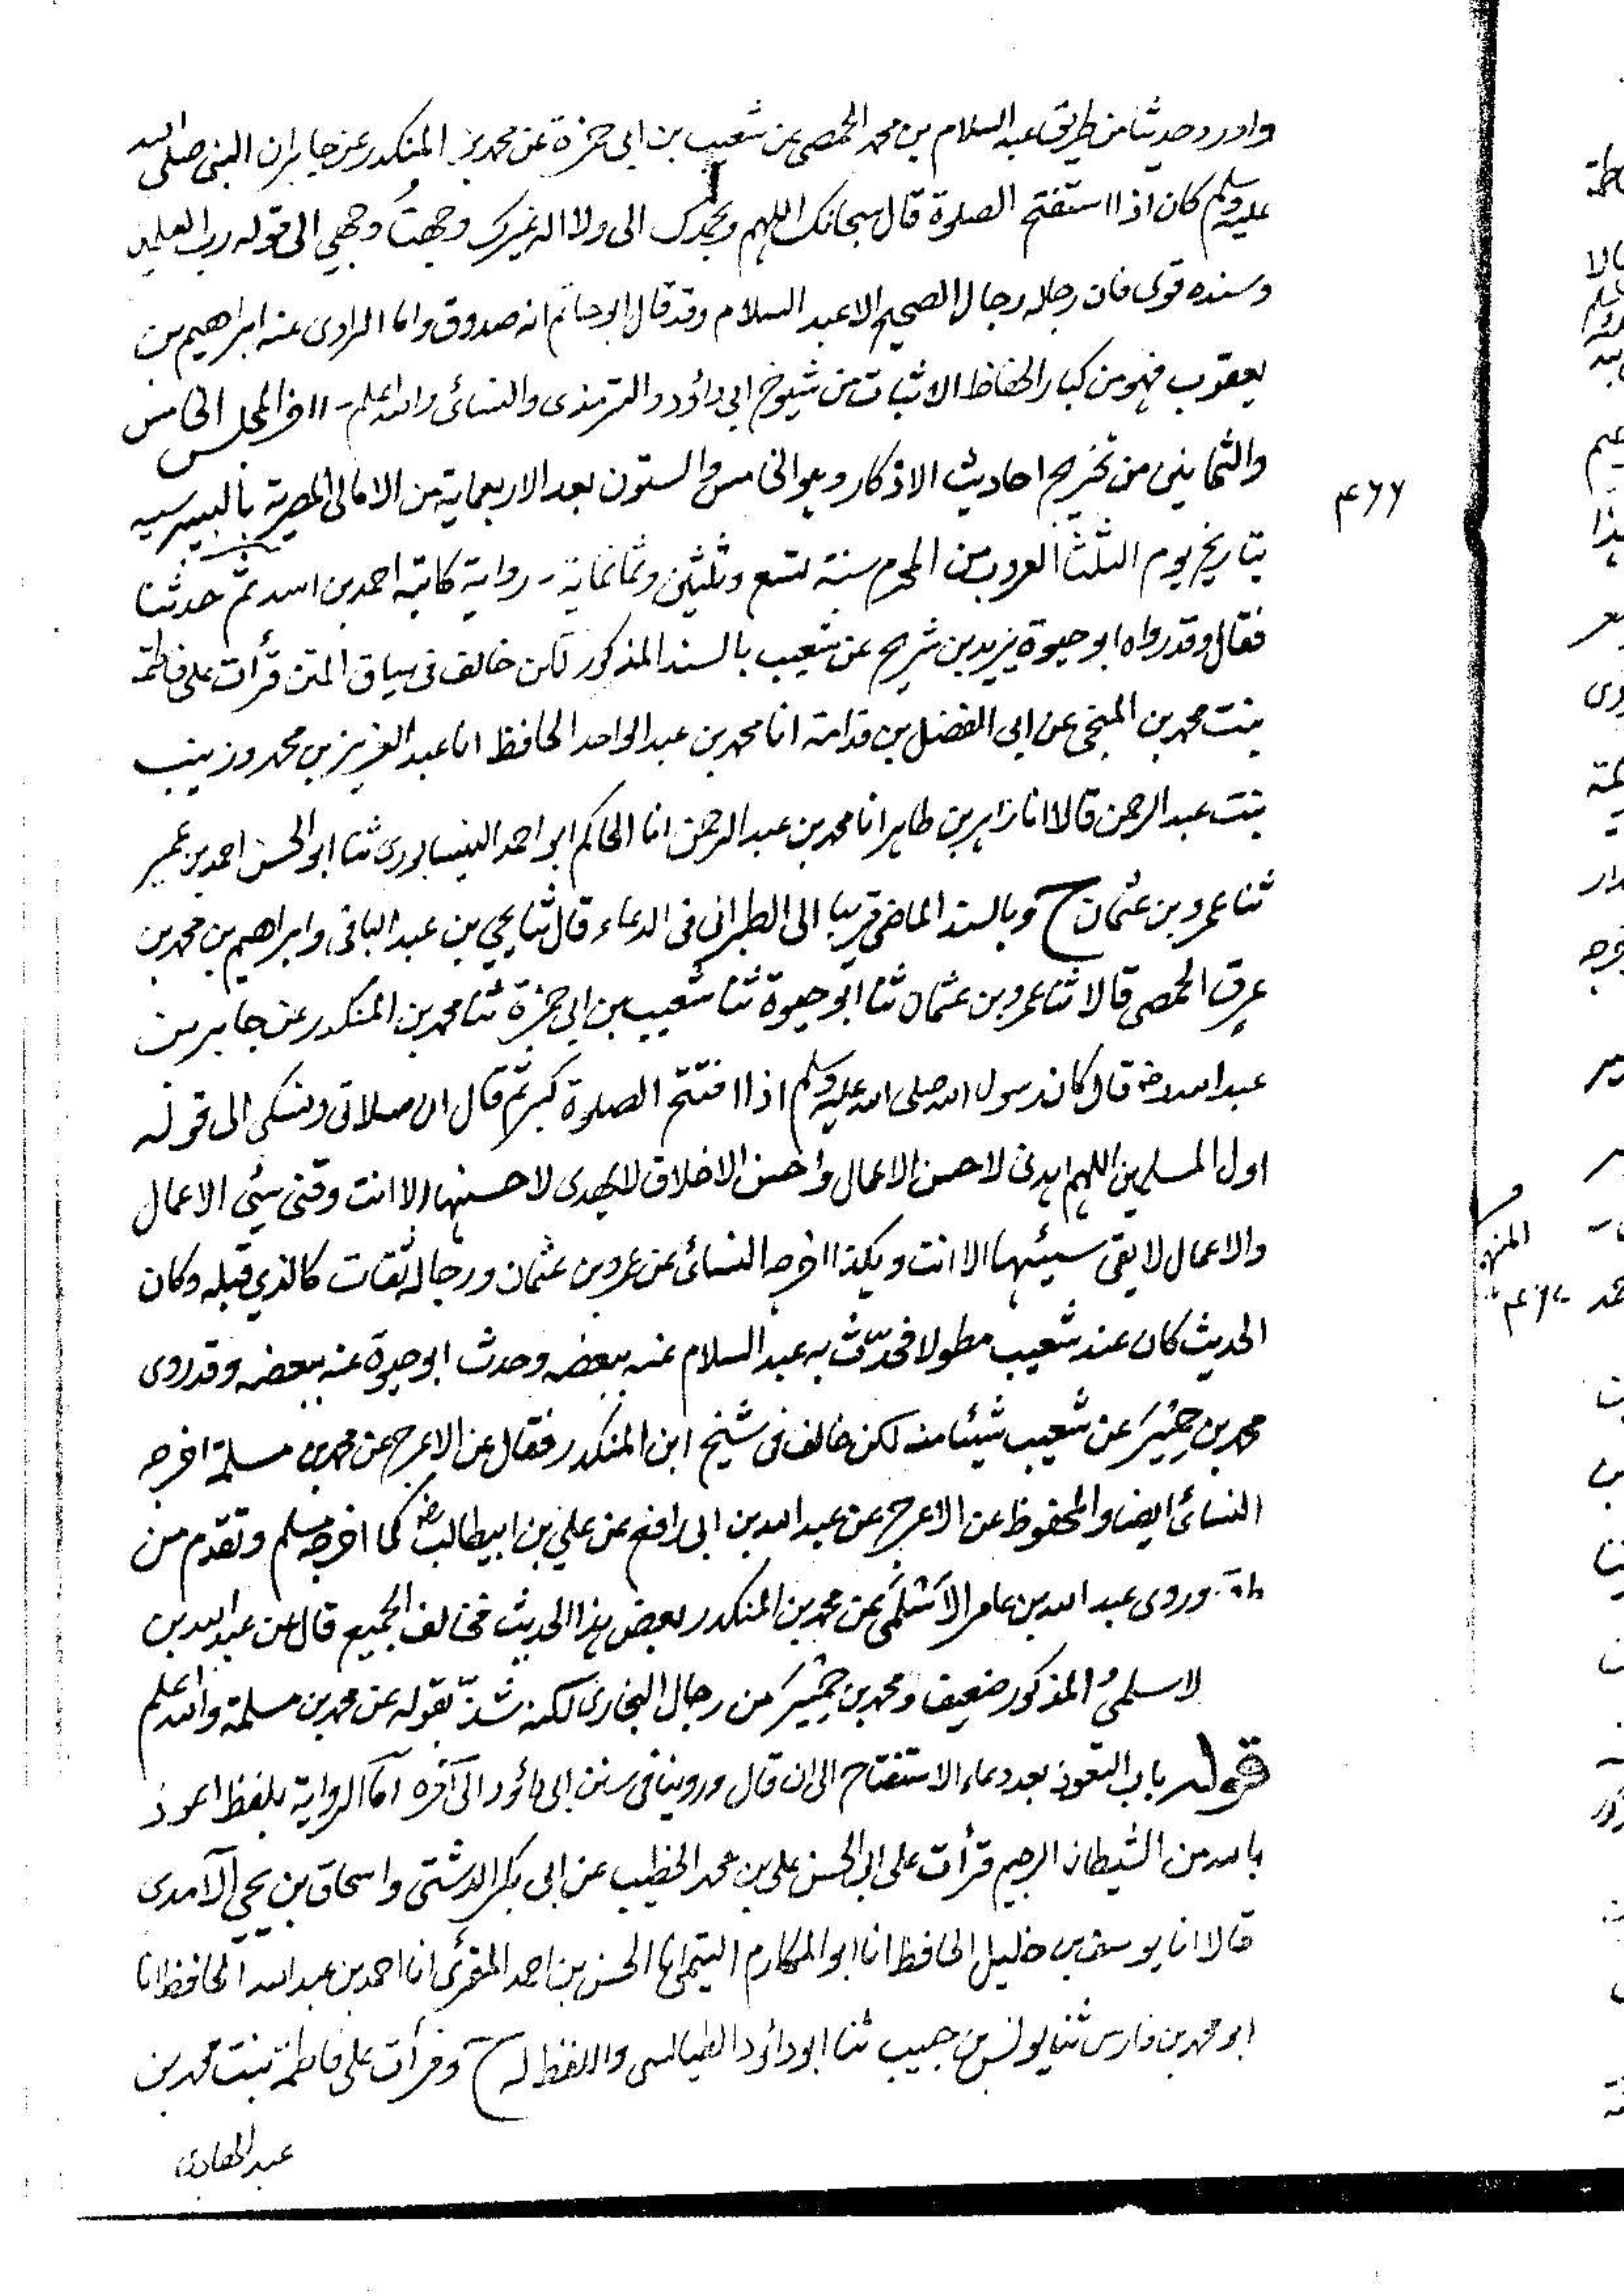 واورد حديثا من طريق عبد السلام بن محمد الحمصى عن شعيب بن ابى حمزة عن محمد بن المنكدر عن جابر ان النبى صلى الله
عليه وسلم كان اذا استفتح الصلوة قال سبحانك اللهم وبحمدك الى ولا اله غيرك وجهت وجهي الى قوله رب العلمين
وسنده قوى فان رجاله رجال الصحيح الا عبد السلام وقد قال ابو حاتم انه صدوق واما الراوى عنه ابراهيم بن
يعقوب فهو من كبار الحفاظ الاثبات من شيوخ ابى داؤد والترمذى والنسائى والله اعلم - المجلس الخامس
والثمانين من تخريج احاديث الاذكار وهو الخامس والستون بعد الاربعماية من الامالى المصرية بالبيبرسيه
۴۶۶
بتاريخ يوم الثلثا من المحرم سنة تسع وثلثين وثمانماية - رواية كاتبه احمد بن اسد ثم حدثنا
فقال وقد رواه ابو حيوة يزيد بن شريح عن شعيب بالسند المذكور لكن خالف فى سياق المتن قرأت على فاطمة
بنت محمد بن المنجى عن ابى الفضل بن قدامة انا محمد بن عبد الواحد الحافظ انا عبد العزيز بن محمد وزينب
بنت عبد الرحمن قالا انا زاهر بن طاهر انا محمد بن عبد الرحمن انا الحاكم ابو احمد النيسابورى ثنا ابو الحسن احمد بن عمير
ثنا عمرو بن عثمان ح وبالسند الماضى قريبا الى الطبرانى فى الدعاء قال ثنا يحيى بن عبد الباقى وابراهيم بن محمد بن
عرق الحمصى قالا ثنا عمرو بن عثمان ثنا ابو حيوة ثنا شعيب بن ابى حمزة ثنا محمد بن المنكدر عن جابر بن
عبد الله رضـ قال كان رسول الله صلى الله عليه وسلم اذا افتتح الصلوة كبر ثم قال ان صلاتى ونسكى الى قوله
اول المسلمين اللهم اهدنى لاحسن الاعمال واحسن الاخلاق لا يهدى لاحسنها الا انت وقنى سيئ الاعمال
والاعمال لا يقى سيئها الا انت وهكذا اخرجه النسائى عن عمرو بن عثمان ورجاله ثقات كالذي قبله وكان
الحديث كان عند شعيب مطولا فحدّث به عبد السلام عنه ببعضه وحدث ابو حيوة عنه ببعضه وقد روى
محمد بن حِمْيَر عن شعيب شيئا منه لكن خالف فى شيخ ابن المنكدر فقال عن الاعرج عن محمد بن مسلمة اخرجه
النسائى ايضا والمحفوظ عن الاعرج عن عبيد الله بن ابى رافع عن علي بن ابيطالب رضـ كما اخرجه مسلم وتقدم من
وروى عبد الله بن عامر الاسلمى عن محمد بن المنكدر بعض هذا الحديث فخالف الجميع قال عن عبد الله بن
لاسلمى المذكور ضعيف ومحمد بن حِمْيَر من رجال البخارى لكنه شذّ بقوله عن محمد بن مسلمة والله اعلم
قوله باب التعوذ بعد دعاء الاستفتاح الى ان قال وروينا فى سنن ابى داؤد الى آخره اما الرواية بلفظ اعوذ
بالله من الشيطان الرجيم قرأت على ابى الحسن على بن محمد الخطيب عن ابى بكر الدشتى واسحاق بن يحيى الآمدى
قالا انا يوسف بن خليل الحافظ انا ابو المكارم التيمى انا الحسن بن احمد المقرى انا احمد بن عبد الله الحافظ انا
ابو محمد بن فارس ثنا يونس بن حبيب ثنا ابو داؤد الطيالسى واللفظ له ح وقرأت على فاطمة بنت محمد بن
عبد الهادى